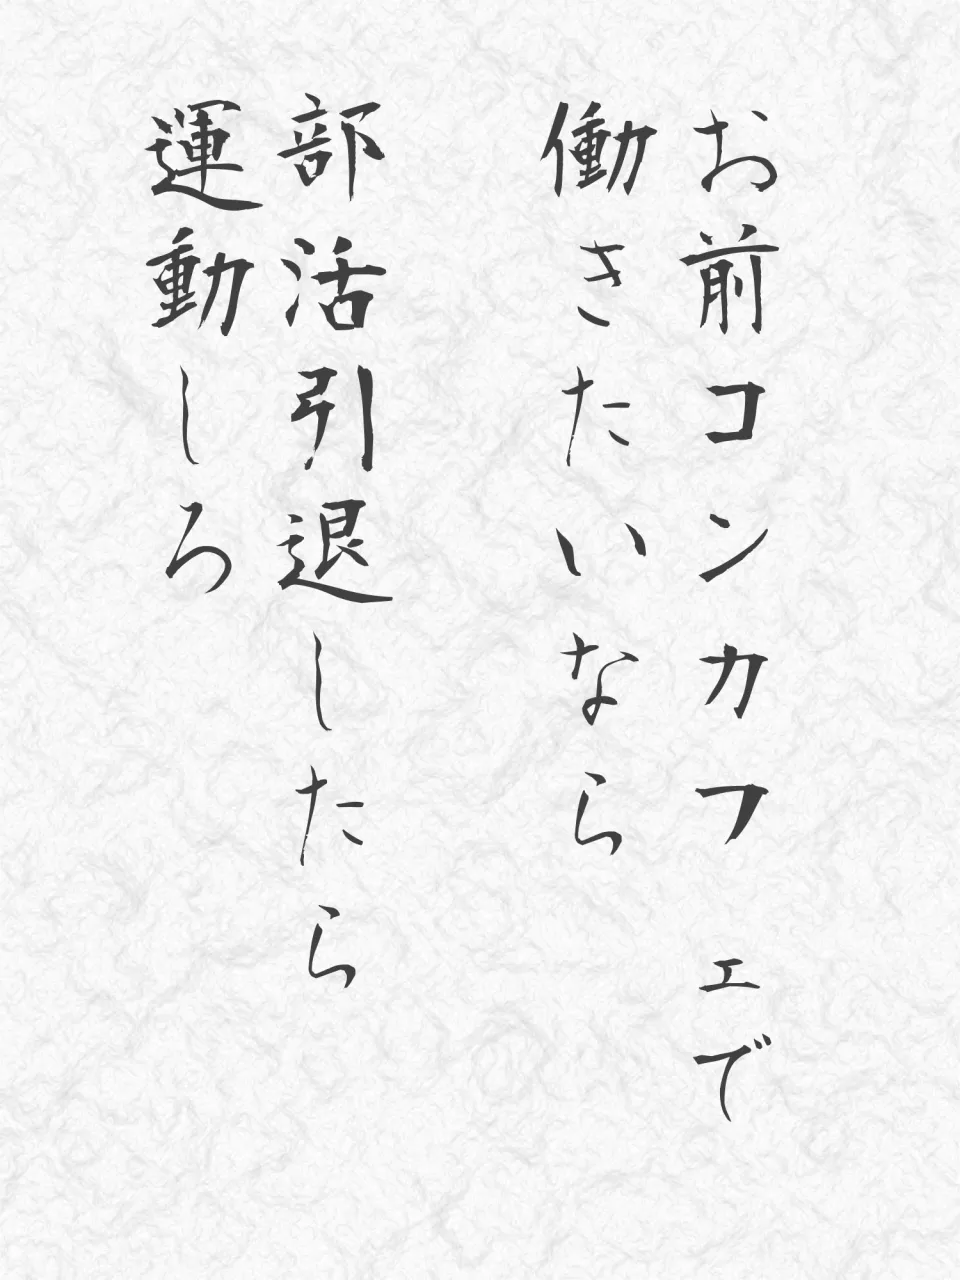 お前コンカフェで
働きたいなら
部活引退したら
運動しろ